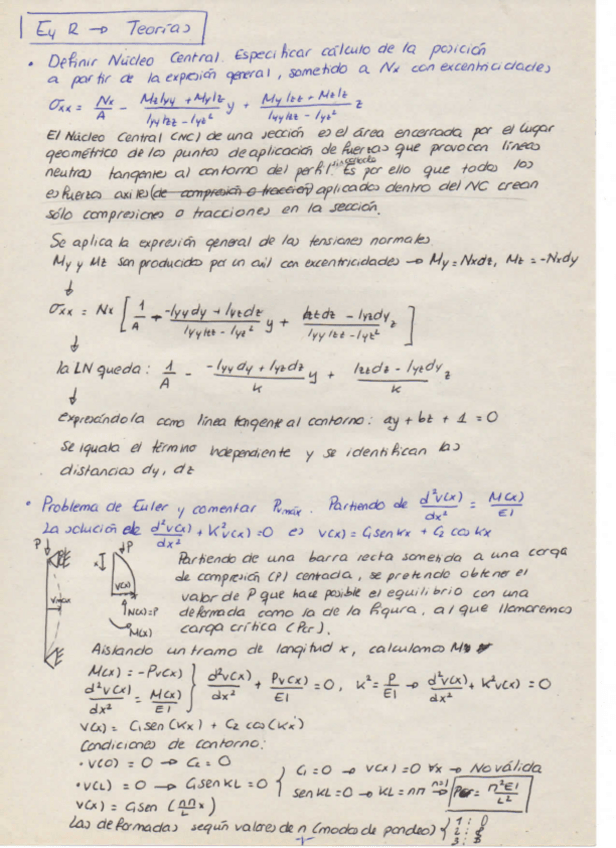 Ey R → Teorías
• Definir Núcleo Central. Especificar cálculo de la posición
a partir de la expresión general, sometido a Nx con excentricidades
σxx = Nx/A - (Mz Iyy + My Iyz)/(Iyy Izz - Iyz²) y + (My Izz + Mz Iyz)/(Iyy Izz - Iyz²) z
El Núcleo Central (NC) de una sección es el área encerrada por el lugar
geométrico de los puntos de aplicación de fuerzas que provocan líneas
neutras tangentes al contorno del perfil. Es por ello que todos los
esfuerzos axiles (de compresión o tracción) aplicados dentro del NC crean
sólo compresiones o tracciones en la sección.
Se aplica la expresión general de las tensiones normales
My y Mz son producidos por un axil con excentricidades → My = Nxdz, Mz = -Nxdy
↓
σxx = Nx [ 1/A - (-Iyydy + Iyzdz)/(IyyIzz - Iyz²) y + (Izzdz - Iyzdy)/(IyyIzz - Iyz²) z ]
↓
la LN queda: 1/A - (-Iyydy + Iyzdz)/K y + (Izzdz - Iyzdy)/K z
↓
expresándola como línea tangente al contorno: ay + bz + 1 = 0
Se iguala el término independiente y se identifican las
distancias dy, dz
• Problema de Euler y comentar Pmáx. Partiendo de d²v(x)/dx² = M(x)/EI
La solución de d²v(x)/dx² + K²v(x) = 0 es v(x) = C₁senkx + C₂ cos kx
P P x v(x) vmáx N(x)=P M(x)
Partiendo de una barra recta sometida a una carga
de compresión (P) centrada, se pretende obtener el
valor de P que hace posible el equilibrio con una
deformada como la de la figura, al que llamaremos
carga crítica (Pcr).
Aislando un tramo de longitud x, calculamos M
M(x) = -Pv(x)
d²v(x)/dx² = M(x)/EI } d²v(x)/dx² + Pv(x)/EI = 0, K² = P/EI → d²v(x)/dx² + K²v(x) = 0
v(x) = C₁sen(Kx) + C₂ cos(Kx)
Condiciones de contorno:
• v(0) = 0 → C₂ = 0
• v(L) = 0 → C₁sen KL = 0 { C₁ = 0 → v(x) = 0 ∀x → No válida
sen KL = 0 → KL = nπ n=1→ Pcr = π²EI/L²
v(x) = C₁sen(nπ/L x)
Las deformadas según valores de n (modos de pandeo) { 1: 2: 3: